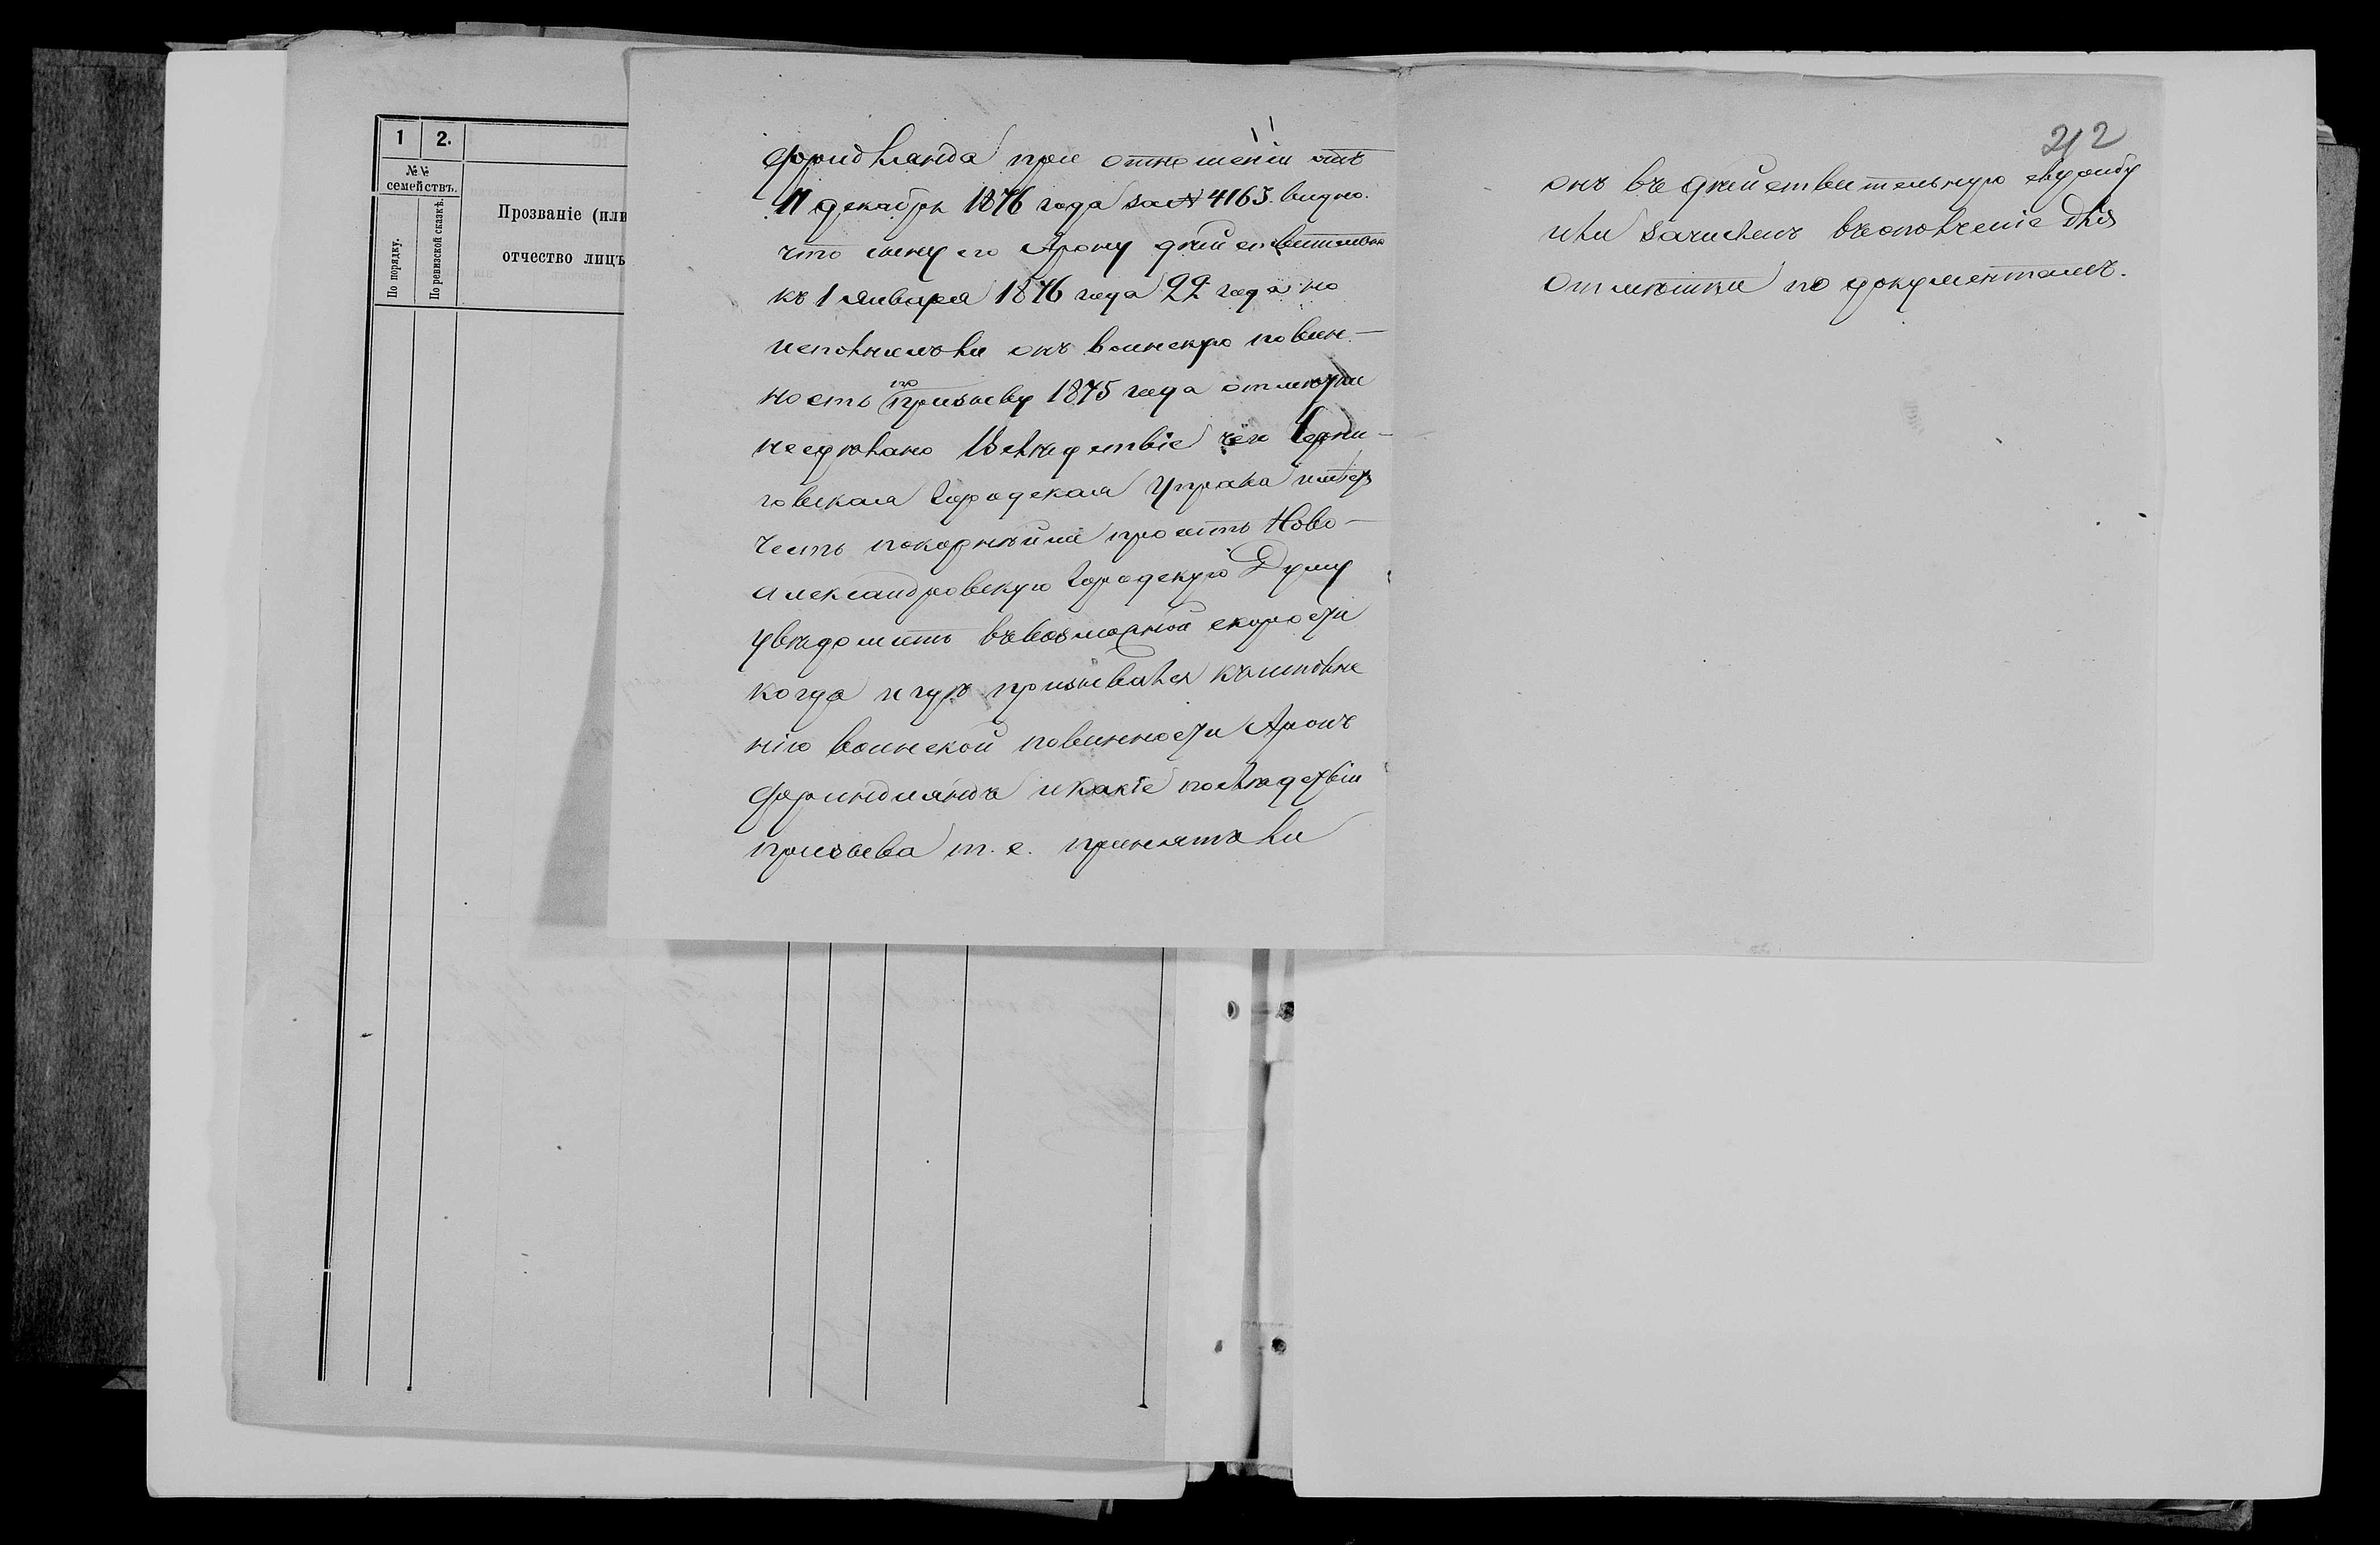 1
2.
№№
семействъ.
По порядку.
По ревизской сказкѣ.
Прозваніе (или
отчество лицъ
Фридлянда при отношеніи отъ
11 декабря 1876 года за № 4163. видно.
что сыну его Арону дѣйствительно
къ 1 января 1876 года 22 года но
исполнилъ ли онъ воинскую повин-
ность по призыву 1875 года отмѣтки
не сдѣлано Вслѣдствіе чего Черни-
говская Городская Управа имѣетъ
честь покорнѣйше просить Ново-
александровскую Городскую Думу
увѣдомить въ возможной скорости
когда и гдѣ призывался къ исполне
нію воинской повинности Аронъ
Фриндляндъ и какіе послѣдствіи
призыва т. е. принятъ ли
212
онъ въ дѣйствительную службу
или зачисленъ въ ополченіе для
отмѣтки по документамъ.